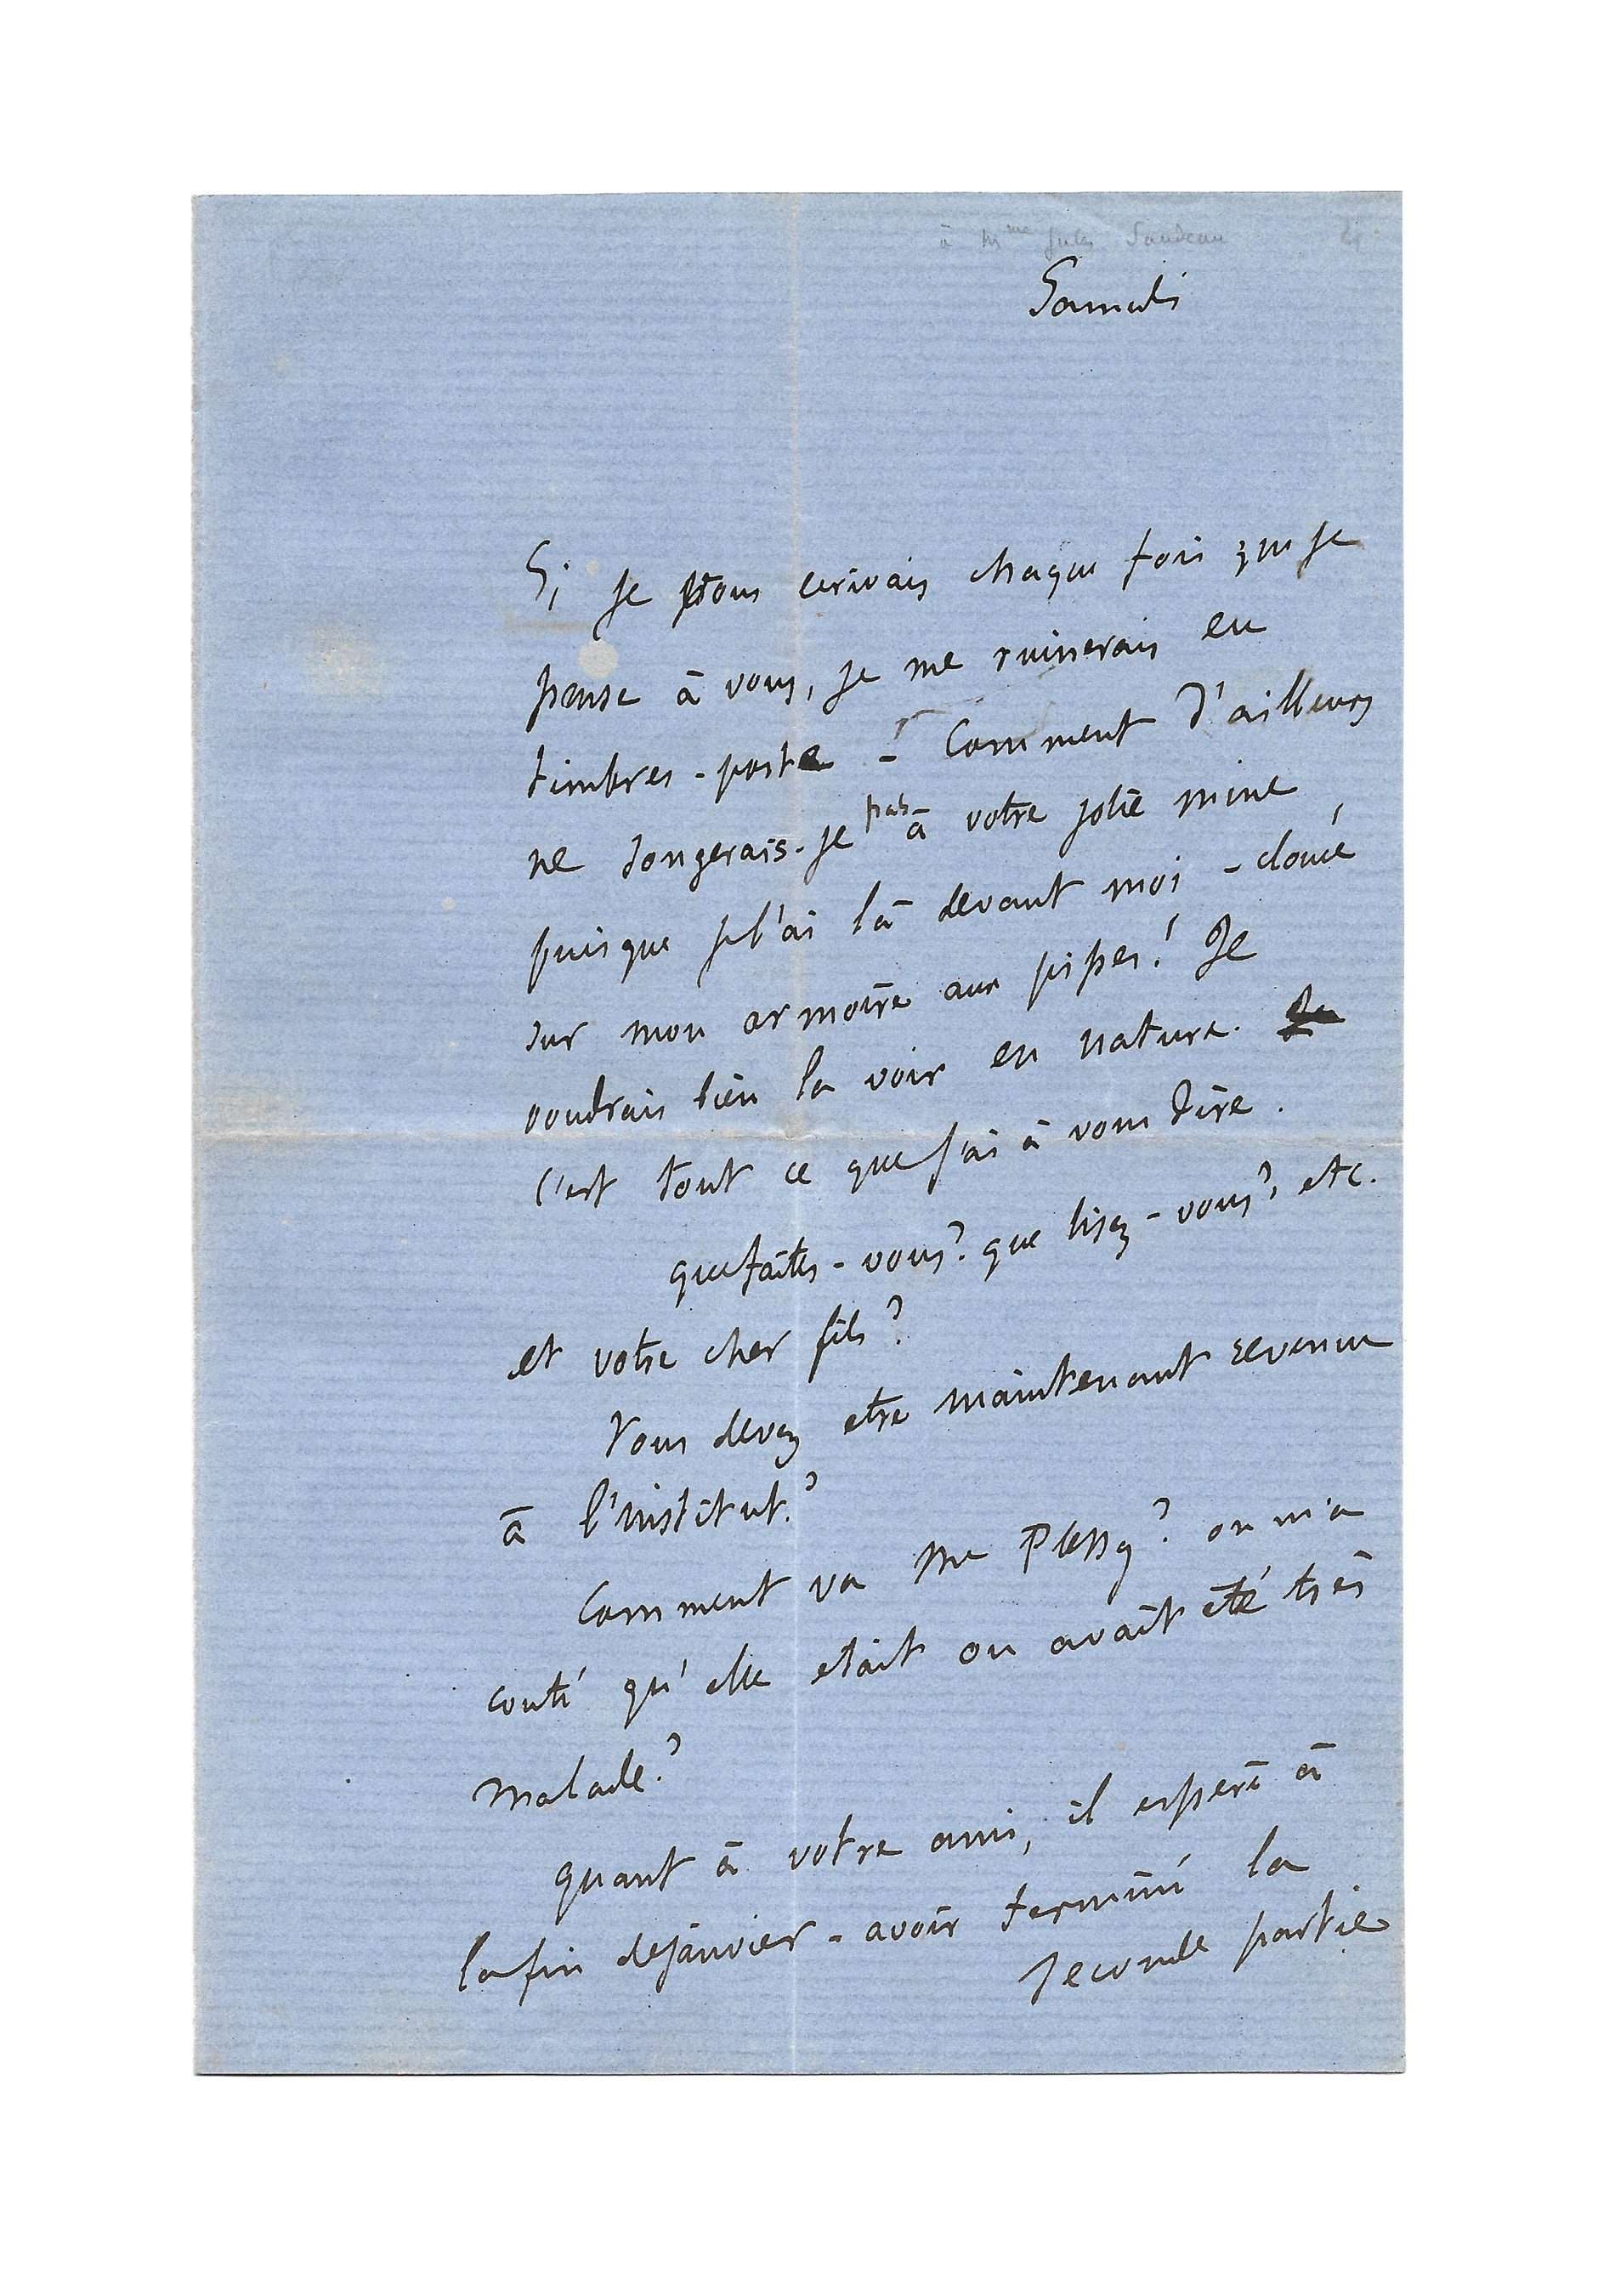 à Mme Jules Sandeau
Samedi
Si je vous ecrivais chaque fois que je
pense à vous, je me ruinerais en
timbres-poste - Comment d'ailleurs
ne songerais-je pas à votre jolie mine
puisque je l'ai là devant moi - cloué
sur mon armoire aux pipes! Je
voudrais bien la voir en nature. Je
C'est tout ce que j'ai à vous dire.
que faites-vous? que lisez-vous? etc.
et votre cher fils?
Vous devez etre maintenant revenue
à l'institut?
Comment va Me Plessy? on m'a
conté qu'elle etait ou avait été très
malade?
quant à votre ami, il espere à
la fin de janvier - avoir terminé la
seconde partie